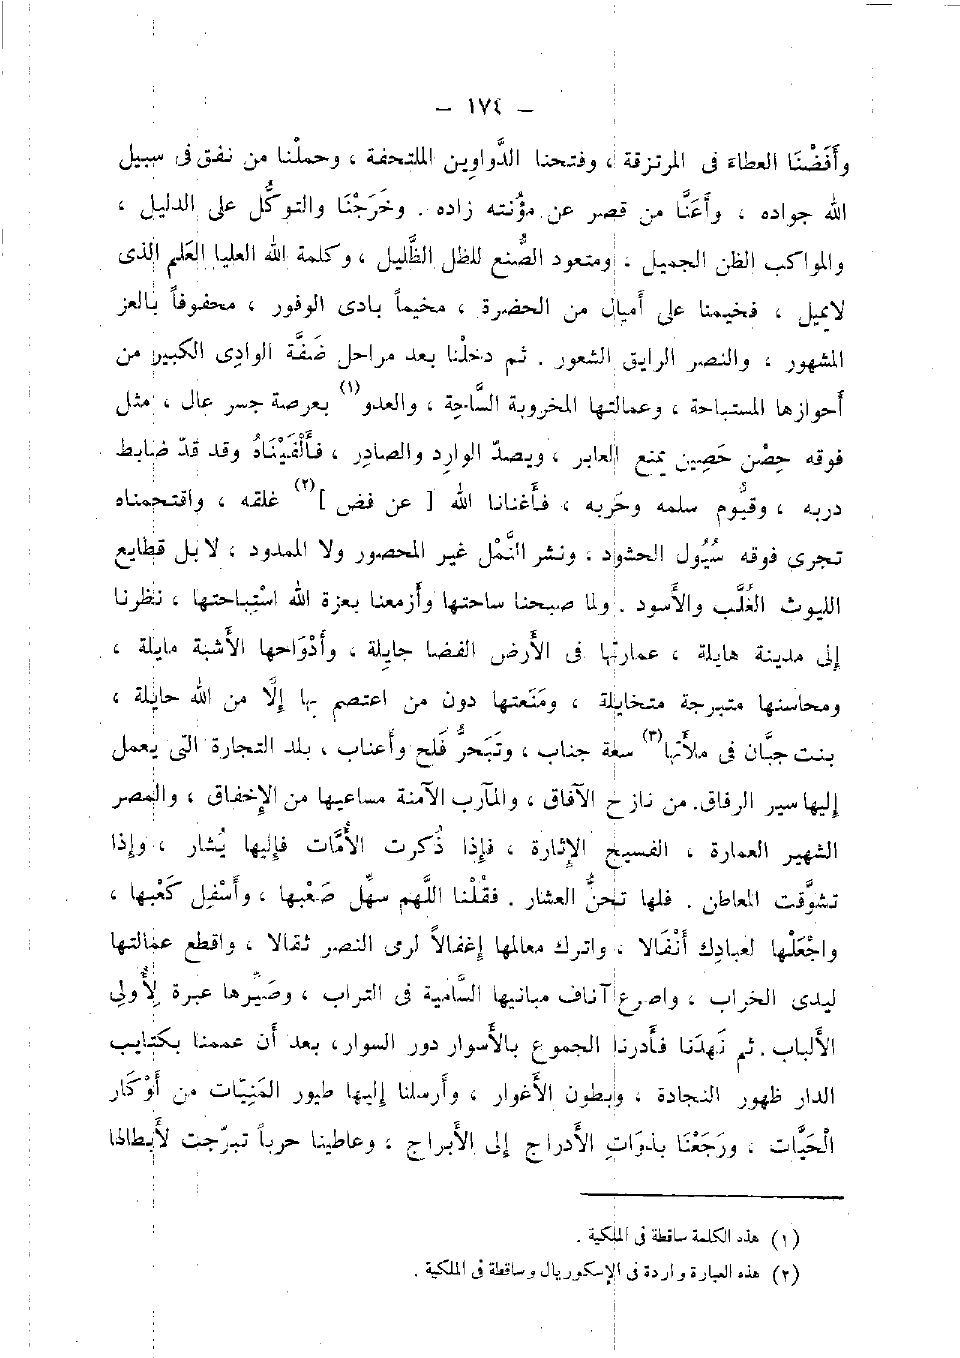 — ١٧٤ —
وأَفَضْنَا العطاءَ فى المرتزقة ، وفتحنا الدَّواوِين الملتحفة ، وحملْنا من نفق فى سبيل
الله جواده ، وأَعَنَّا من قصر عن مؤُنته زاده . وخَرَجْنَا والتوكُّل على الدليل ،
والمواكب الظن الجميل ، ومتعود الصُّنع للظل الظَّليل ، وكلمة الله العليا العَلَم الذى
لايميل ، فخيمنا على أميال من الحضرة ، مخيماً بادى الوفور ، محفوفاً بالعز
المشهور ، والنصر الرايق الشعور . ثم دخلْنا بعد مراحل ضَفَّة الوادِى الكبير من
أحوازها المستباحة ، وعمالتها المخروبة السَّاحِة ، والعدو(١) بعرصة جسر عال ، مثل
فوقه حِصْن حَصِين يمنع العابر ، ويصدّ الوارِد والصادِر ، فأَلْفَيْنَاهُ وقد قدّ ضابط
دربه ، وقيُّوم سلمه وحَربه ، فأَغنانا الله [ عن فض ](٢) غلقه ، واقتحمناه
تجرى فوقه سُيُول الحشود ، ونشر النَّمْل غير المحصور ولا الممدود ، لا بل قطايع
الليوث الغُلَّب والأسود . ولما صبحنا ساحتها وأزمعنا بعزة الله اسْتِباحتها ، نظرنا
إلى مدينة هايلة ، عمارتها فى الأَرض الفضا جايِلة ، وأَدْوَاحها الأَشبة مايلة ،
ومحاسنها متبرجة متخايلة ، ومَنَعتها دون من اعتصم بها إِلَّا من الله حايلة ،
بنت جيَّان فى ملأَتها(٣) سعة جناب ، وتَبَحرُّ فَلح وأَعناب ، بلد التجارة التى يعمل
إليها سير الرفاق. من نازح الآفاق ، والمآرب الآمنة مساعيها من الإِخفاق ، والمصر
الشهير العمارة ، الفسيح الإِثارة ، فإِذا ذُكرت الأُمَّات فإِليها يُشار ، وإِذا
تشوَّقت المعاطن . فلها تحنُّ العشار . فقُلْنا اللَّهم سهِّل صَعْبها ، وأَسْفِل كَعْبها ،
واجْعَلْها لعبادِك أَنْفَالا ، واترك معالمها إِغفالاً لرمى النصر ثقالا ، واقطع عمالتها
ليدى الخراب ، واصرع آناف مبانيها السَّامية فى التراب ، وصَيِّرها عبرة لِأُولى
الأَلباب . ثم نَهدَنا فأَدرنا الجموع بالأَسوار دور السوار ، بعد أَن عممنا بكتايب
الدار ظهور النجادة ، وبطون الأَغوار ، وأَرسلنا إِليها طيور المَنِيَّات من أَوْكار
الْحَيَّات ، ورَجَعْنَا بذوَاتِ الأَدراج إِلى الأَبراج ، وعاطينا حرباً تبرّجت لأَبطالها
(١) هذه الكلمة ساقطة فى الملكية .
(٢) هذه العبارة واردة فى الإسكوريال وساقطة فى الملكية .